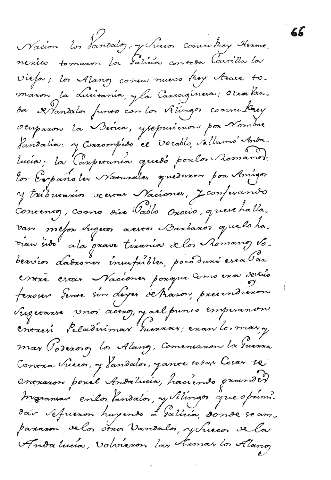 66
Nacion los Vandalos, y Suecos con su Rey Herme
nerico tomaron la Galicia con toda Castilla la
vieja; los Alanos con su nuevo Rey Atace to
maron la Lusitania y la Cartaginens; otra tro
pa de Vandalos junto con los Silingos con su Rey
ocuparon la Betica, y pusieron por Nombre
Vandalia y Corrompido el Vocablo, se llamò Anda-
lucia; la Carpetania quedò por los Romanos,
los Españoles Naturales quedaron por Amigos
y tributarios de estas Naciones, y conservando
como dice Pablo Orosio, que se halla-
van mejor sugetos a estos Barbaros que lo ha
vian sido a la grave tirania de los Romanos so-
bervios ladrones insufribles, poco durò esta Paz
entre estas Naciones porque como era
ferocer Gente sin Leyes de Razon, pretendieron
sugetarse unos a otros, y al punto empezaron
entre si Peladisimas Guerras, eran lo mas, y
mas Poderosos los Alanos, comenzaron la Guerra
contra Suecos, y Vandalos, y ante todas Cosas se
entraron por el Andalucia, haciendo grandes
en los Vandalos, y Silingos que oprimi
dos se fueron huyendo à Galicia, donde se am-
pararon de los otros Vandalos, y Suecos de la
Andalucia, volvieron las Armas los Alanos,